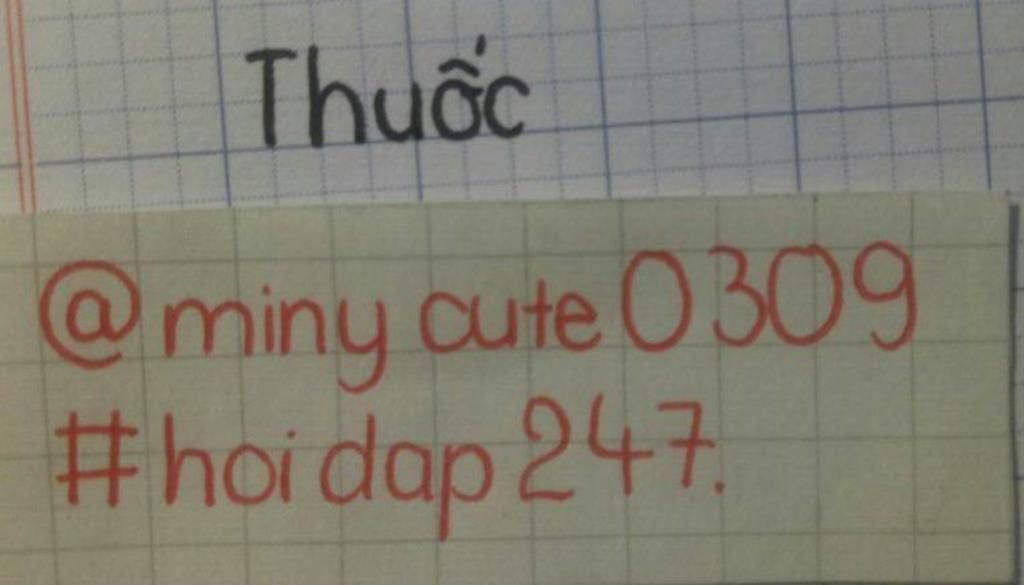 Thuốc
@miny cute 0309
#hoi dap 247.